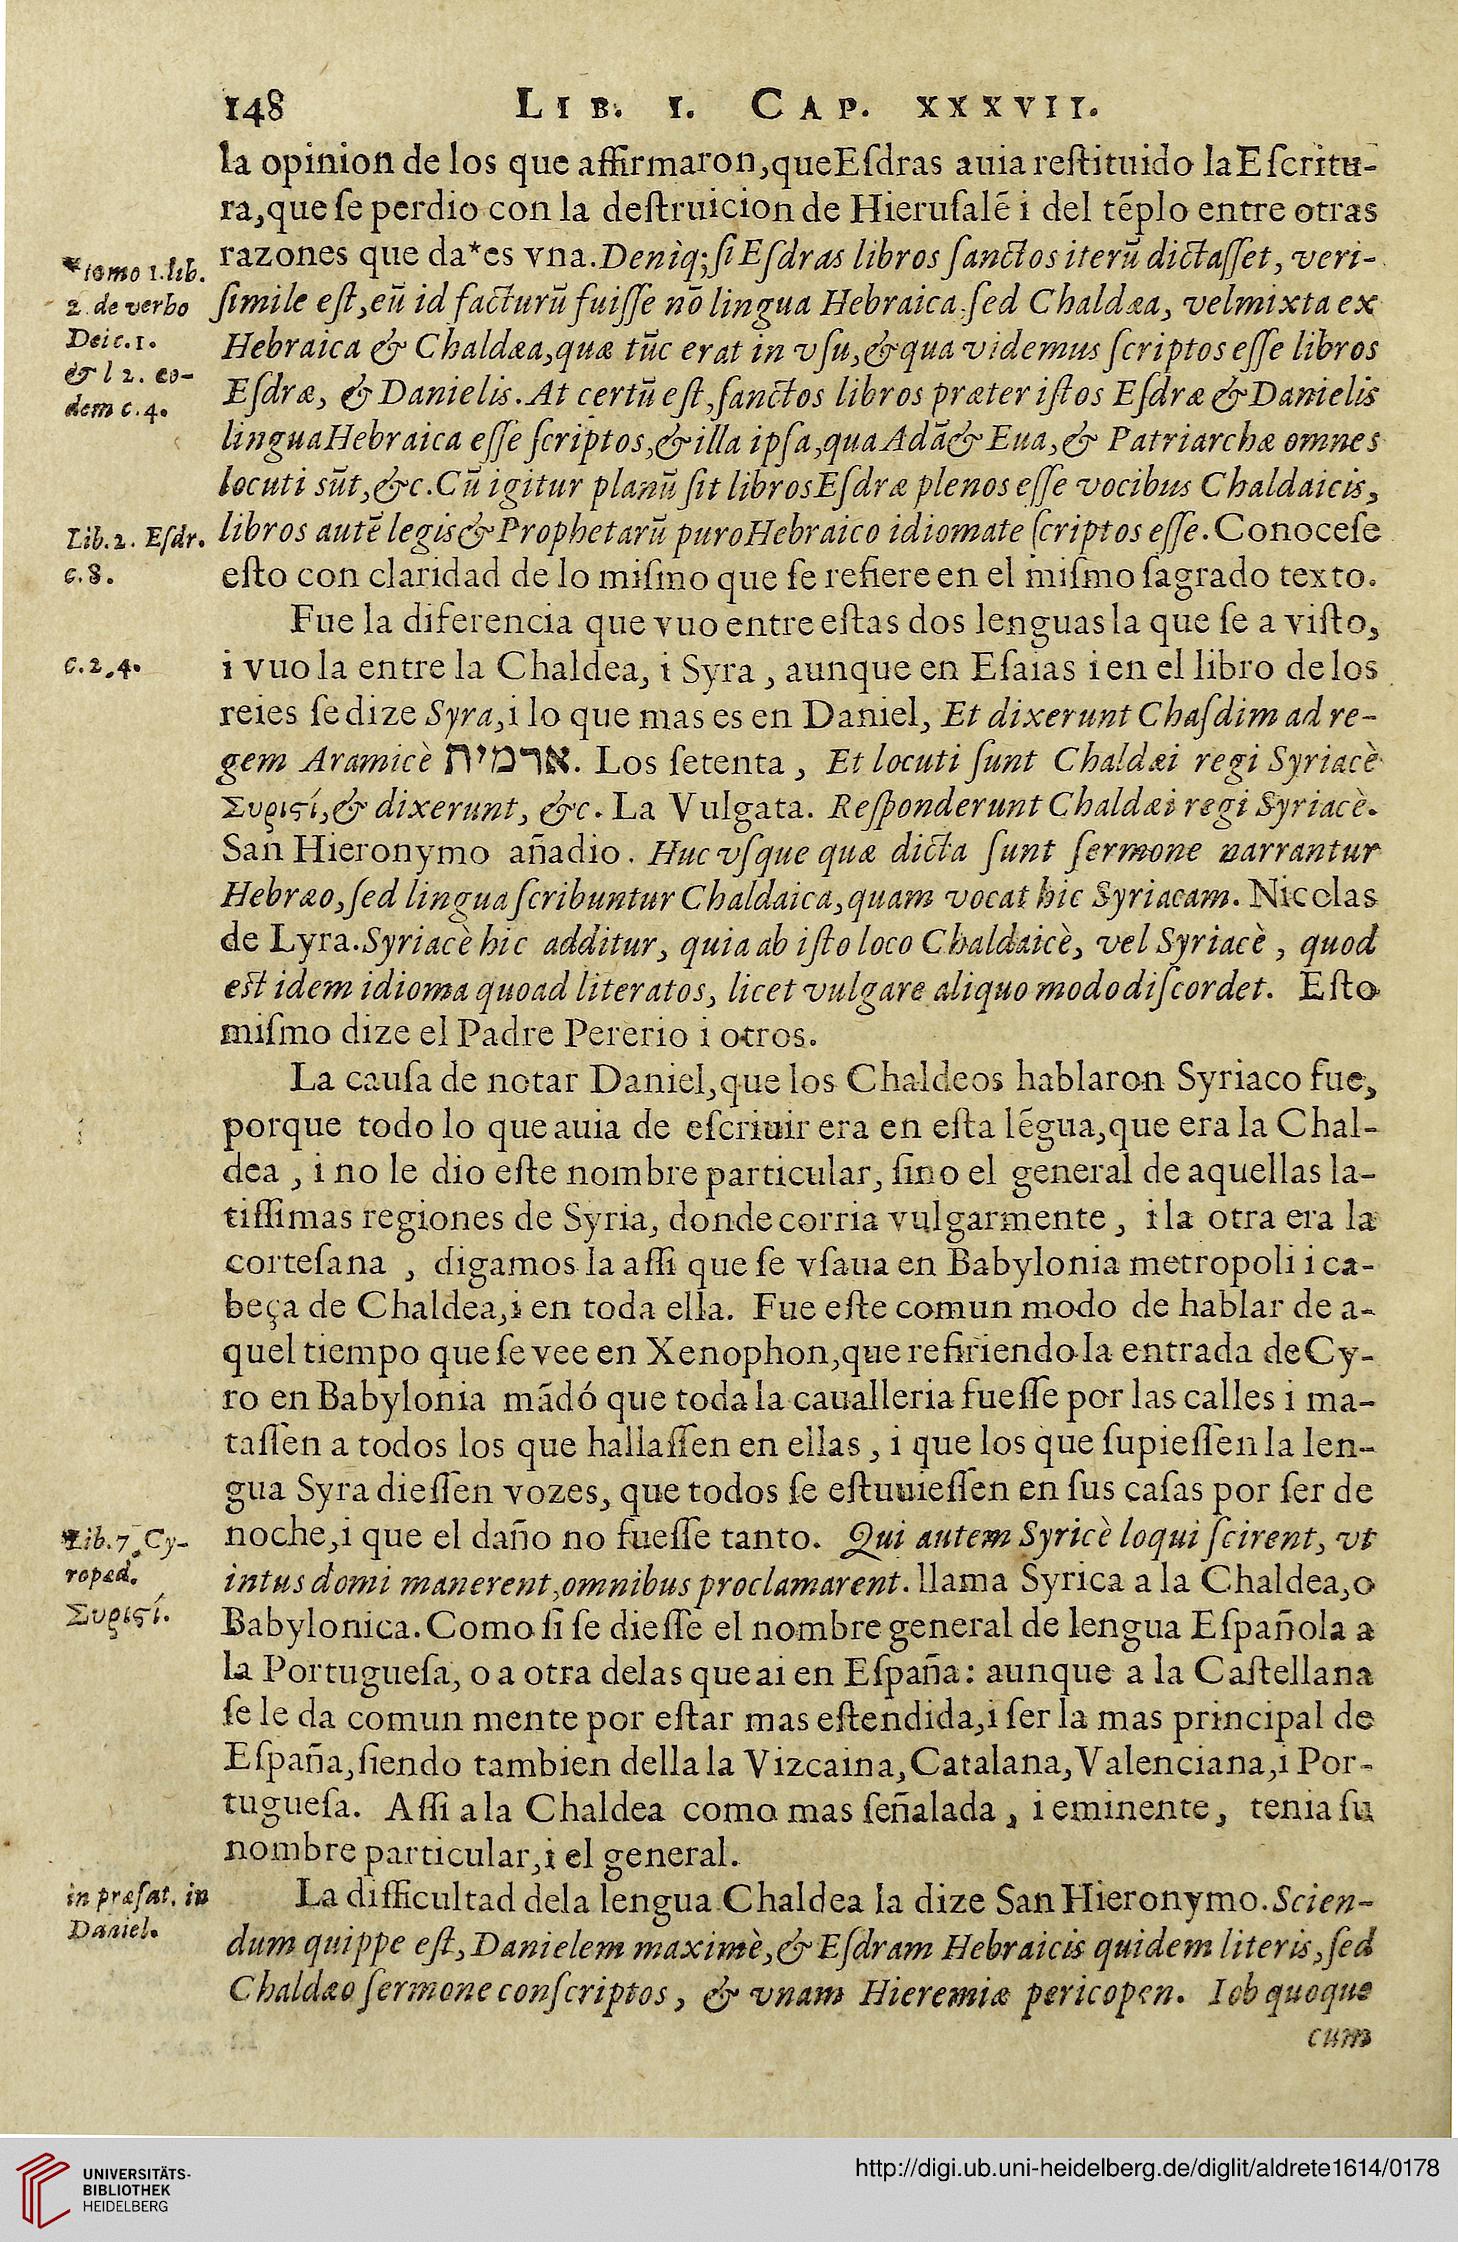 148 LIB. I. CAP. XXXVII.
la opinion de los que affirmaron, que Eſdras auia reſtituido la Eſcritu-
ra, que ſe perdio con la deſtruicion de Hieruſalē i del tēplo entre otras
*tomo 1. lib.
razones que da*es vna. Deniq; ſi Eſdras libros ſanctos iterū dictaſſet, veri-
2. de verbo
ſimile eſt, eū id facturū fuiſſe nō lingua Hebraica ſed Chaldæa, vel mixta ex
Dei c. 1.
Hebraica & Chaldæa, quæ tūc erat in vſu, & qua videmus ſcriptos eſſe libros
& l 2. eo-
Eſdræ, & Danielis. At certū eſt, ſanctos libros præter iſtos Eſdræ & Danielis
dem c. 4.
lingua Hebraica eſſe ſcriptos, & illa ipſa, qua Adā & Eua, & Patriarchæ omnes
locuti sūt, &c. Cū igitur planū ſit libros Eſdræ plenos eſſe vocibus Chaldaicis,
Lib. 2. Eſdr.
libros autē legis & Prophetarū puro Hebraico idiomate ſcriptos eſſe. Conoceſe
c. 8.
eſto con claridad de lo miſmo que ſe refiere en el miſmo ſagrado texto.
Fue la diferencia que vuo entre eſtas dos lenguas la que ſe a viſto,
c. 2, 4.
i vuo la entre la Chaldea, i Syra, aunque en Eſaias i en el libro de los
reies ſe dize Syra, i lo que mas es en Daniel, Et dixerunt Chaſdim ad re-
gem Aramicè ארמית. Los ſetenta, Et locuti ſunt Chaldæi regi Syriacè
Συριςί, & dixerunt, &c. La Vulgata. Reſponderunt Chaldæi regi Syriacè.
San Hieronymo añadio. Huc vſque quæ dicta ſunt ſermone narrantur
Hebræo, ſed lingua ſcribuntur Chaldaica, quam vocat hic Syriacam. Nicolas
de Lyra. Syriacè hic additur, quia ab iſto loco Chaldaicè, vel Syriacè, quod
eſt idem idioma quoad literatos, licet vulgare aliquo modo diſcordet. Eſto
miſmo dize el Padre Pererio i otros.
La cauſa de notar Daniel, que los Chaldeos hablaron Syriaco fue,
porque todo lo que auia de eſcriuir era en eſta lēgua, que era la Chal-
dea, i no le dio eſte nombre particular, ſino el general de aquellas la-
tiſſimas regiones de Syria, donde corria vulgarmente, i la otra era la
corteſana, digamos la aſſi que ſe vſaua en Babylonia metropoli i ca-
beça de Chaldea, i en toda ella. Fue eſte comun modo de hablar de a-
quel tiempo que ſe vee en Xenophon, que refiriendo la entrada de Cy-
ro en Babylonia mādó que toda la caualleria fueſſe por las calles i ma-
taſſen a todos los que hallaſſen en ellas, i que los que ſupieſſen la len-
gua Syra dieſſen vozes, que todos ſe eſtuuieſſen en ſus caſas por ſer de
Lib. 7. Cy-
noche, i que el daño no fueſſe tanto. Qui autem Syricè loqui ſcirent, vt
ropæd.
intus domi manerent, omnibus proclamarent. llama Syrica a la Chaldea, o
Συριςί.
Babylonica. Como ſi ſe dieſſe el nombre general de lengua Eſpañola a
la Portugueſa, o a otra delas que ai en Eſpaña: aunque a la Caſtellana
ſe le da comun mente por eſtar mas eſtendida, i ſer la mas principal de
Eſpaña, ſiendo tambien della la Vizcaina, Catalana, Valenciana, i Por-
tugueſa. Aſſi a la Chaldea como mas ſeñalada, i eminente, tenia ſu
nombre particular, i el general.
in præfat. in
La difficultad dela lengua Chaldea la dize San Hieronymo. Scien-
Daniel.
dum quippe eſt, Danielem maximè, & Eſdram Hebraicis quidem literis, ſed
Chaldæo ſermone conſcriptos, & vnam Hieremiæ pericopen. Iob quoque
cum
UNIVERSITÄTS-
BIBLIOTHEK
HEIDELBERG
http://digi.ub.uni-heidelberg.de/diglit/aldrete1614/0178